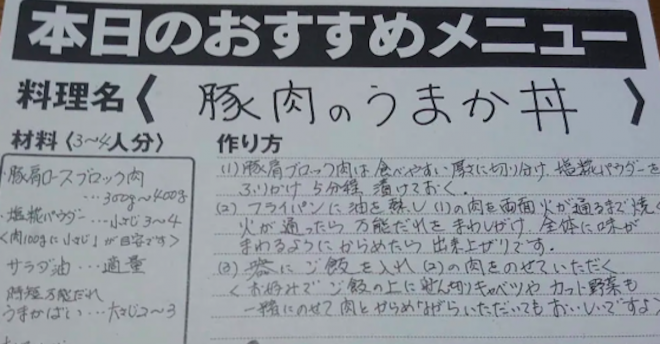 本日のおすすめメニュー
料理名〈 豚肉のうまか丼 〉
材料〈3〜4人分〉
・豚肩ロースブロック肉
…300g〜400g
・塩糀パウダー…小さじ3〜4
<肉100gに小さじ1が目安です>
サラダ油…適量
時短万能だれ
うまかばい…大さじ2〜3
作り方
(1) 豚肩ブロック肉は食べやすい厚さに切り分け、塩糀パウダーを
ふりかけ5分程漬けておく。
(2) フライパンに油を熱し(1)の肉を両面火が通るまで焼く
火が通ったら万能だれをまわしがけ、全体に味が
まわるようにからめたら出来上がりです。
(3) 器にご飯を入れ(2)の肉をのせていただく
くお好みでご飯の上に千切りキャベツやカット野菜も
一緒にのせて肉とからめながらいただいてもおいしいですよ